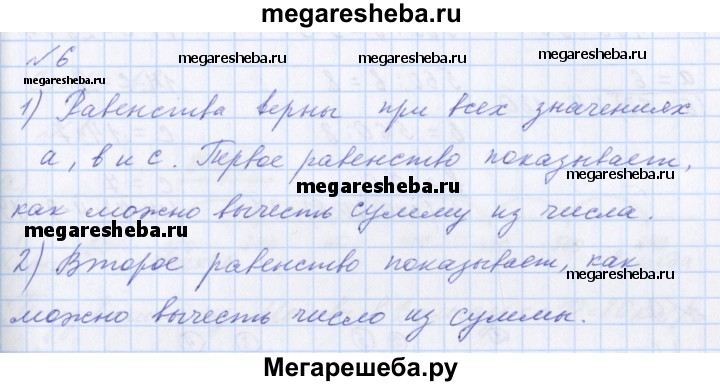 megaresheba.ru
№6
megaresheba.ru
megaresheba.ru
megaresheba.ru
1) Равенства верны при всех значениях
а, в и с. Первое равенство показывает,
megaresheba.ru
как можно вычесть сумму из числа.
megaresheba.ru
2) Второе равенство показывает, как
megaresheba.ru
можно вычесть число из суммы.
Мегарешеба.ру